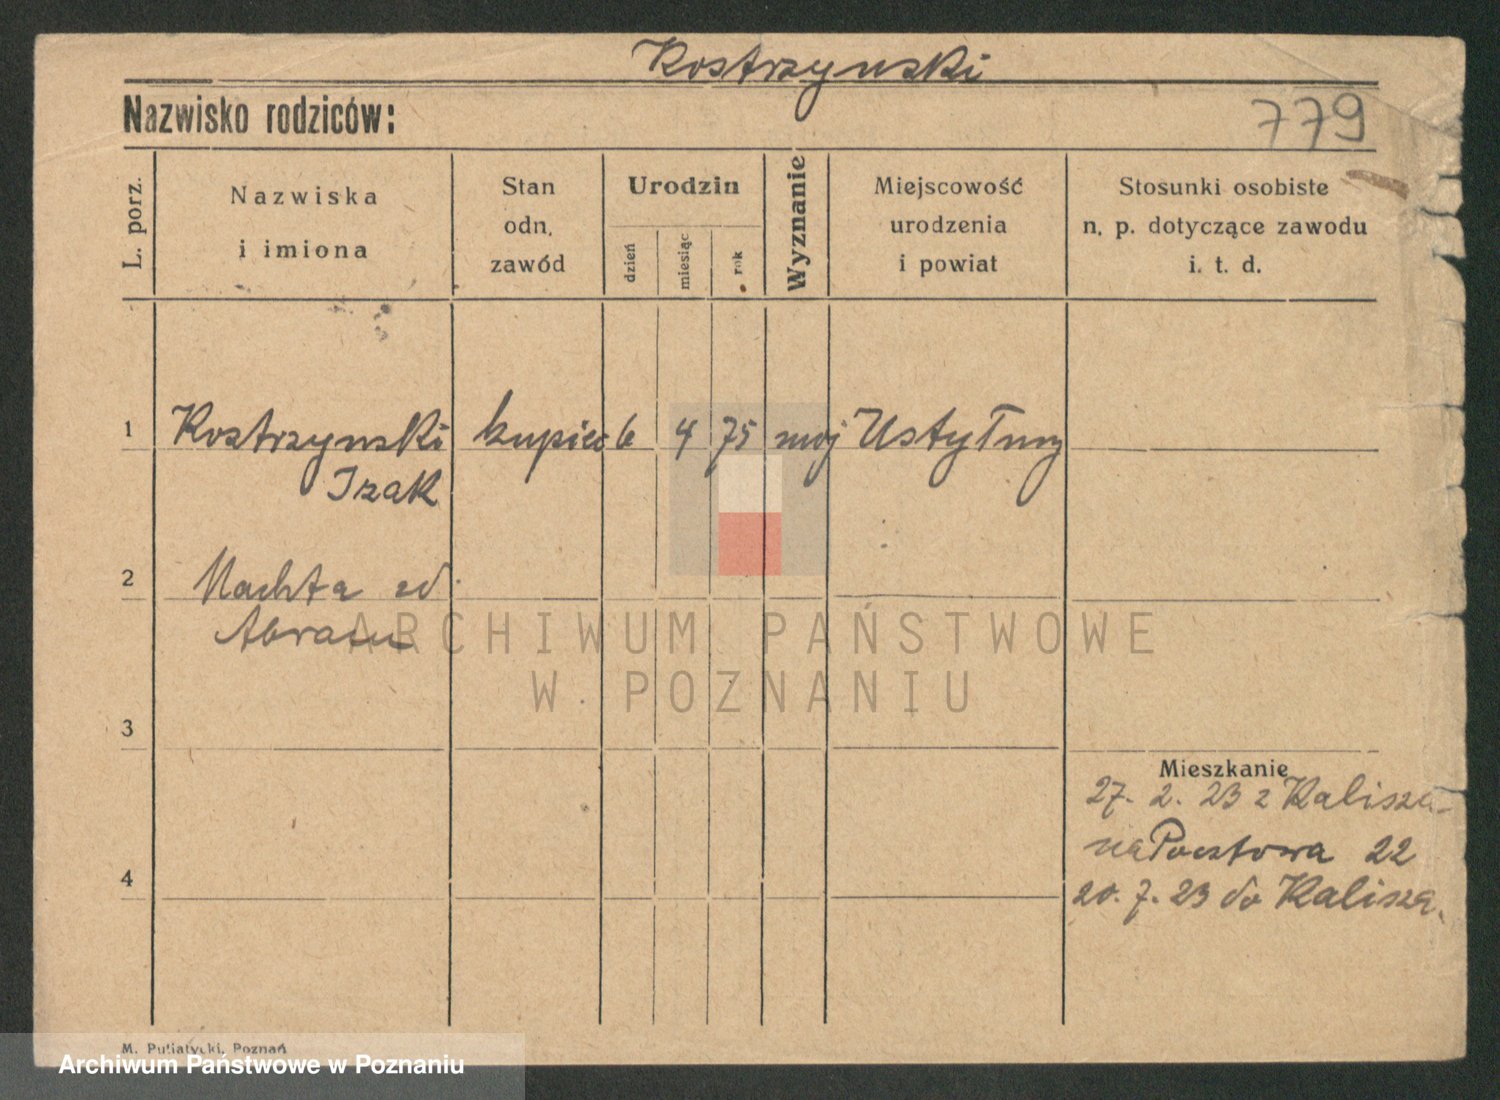 Kostrzynski
Nazwisko rodziców:
779
L. porz.
Nazwiska
i imiona
Stan
odn.
zawód
Urodzin
dzień
miesiąc
rok
Wyznanie
Miejscowość
urodzenia
i powiat
Stosunki osobiste
n. p. dotyczące zawodu
i. t. d.
1 Kostrzynski kupiec 6 4 75 moj
Izak
2 Nachta
Abram
ARCHIWUM PAŃSTWOWE
W POZNANIU
3
Mieszkanie
27. 2. 23 z Kalisza
na Pocztowa 22
4
20. 7. 23 do Kalisza.
M. Putiatycki, Poznań
Archiwum Państwowe w Poznaniu